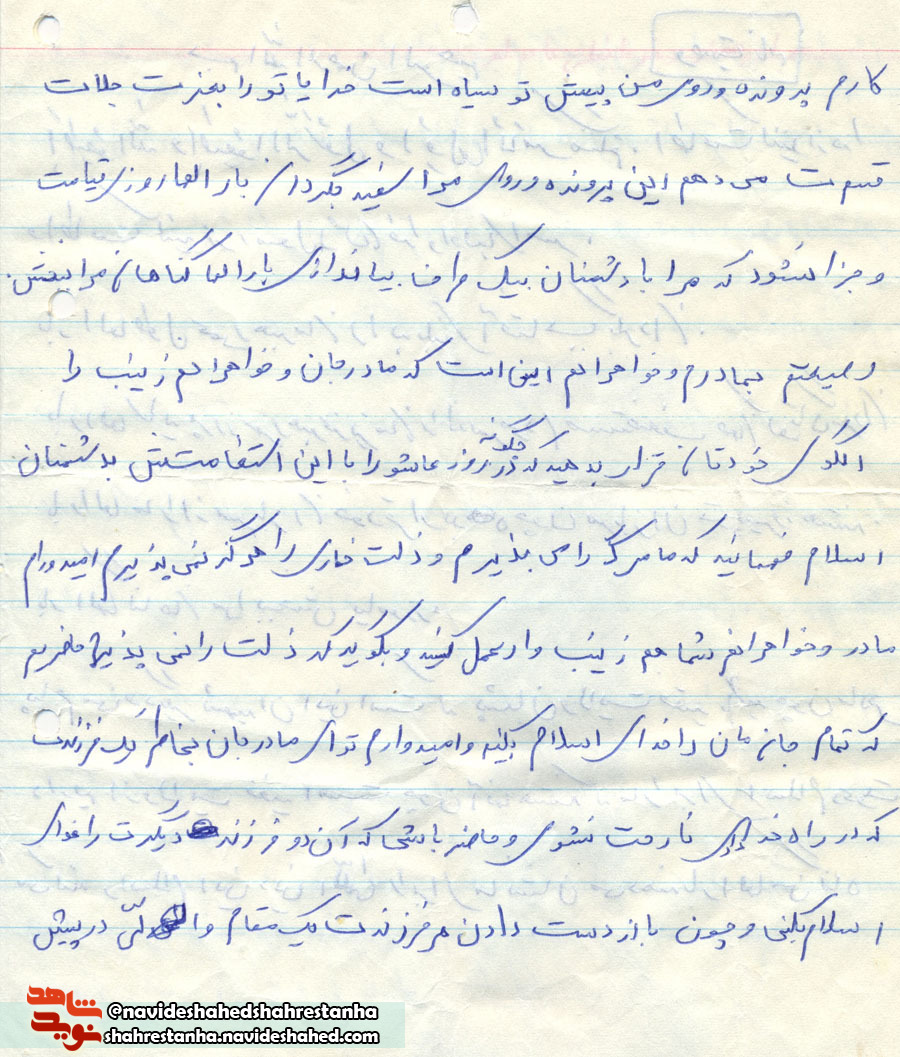 کارم پرونده و روی من پیش تو سیاه است خدایا تو را بعزت جلات
قسمت می دهم این پرونده و روی مرا سفید بگردان بار الها روز قیامت
و جزا نشود که مرا با دشمنان بیک طرف بیاندازی بار الها گناهان مرا ببخش.
وصیتم بمادرم و خواهرانم این است که مادر جان و خواهرانم زینب را
الگوی خودتان قرار بدهید که چگونه در روز عاشورا با این استقامتش بدشمنان
اسلام فهمانید که ما مرگ را می پذیرم و ذلت خاری را هرگز نمی پذیرم امیدورام
مادر و خواهرانم شما هم زینب وار عمل کنید و بگوید که ذلت را نمی پذیرم حاضریم
که تمام جانمان را فدای اسلام بکنیم و امیدوارم توای مادر جان بخاطر یک فرزندت
که در راه خدا ناراحت نشوی و حاضر باشی که آن دو فرزند دیگرت را فدای
اسلام بکنی و چون با از دست دادن هر فرزندت یک مقام والی در پیش
شاهد
نوید
@navideshahedshahrestanha
shahrestanha.navideshahed.com